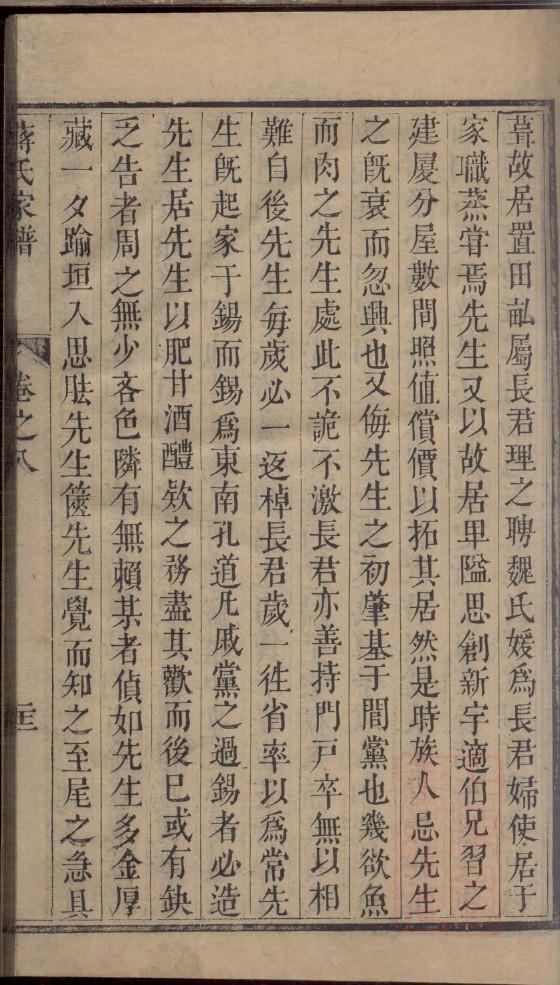 葺故居置田畝屬長君理之聘魏氏媛爲長君婦使居于
家職蒸甞焉先生又以故居卑隘思創新宇適伯兄習之
建厦分屋數間照值償價以拓其居然是時族人忌先生
之旣衰而忽興也又侮先生之初肇基于閭黨也幾欲魚
而肉之先生處此不詭不激長君亦善持門戸卒無以相
難自後先生每歲必一返棹長君歲一徃省率以爲常先
生旣起家于錫而錫爲東南孔道凡戚黨之過錫者必造
先生居先生以肥甘酒醴欵之務盡其歡而後已或有缺
乏告者周之無少吝色隣有無賴某者偵知先生多金厚
藏一夕踰垣入思胠先生篋先生覺而知之至尾之急具
蔣氏家譜
卷之八